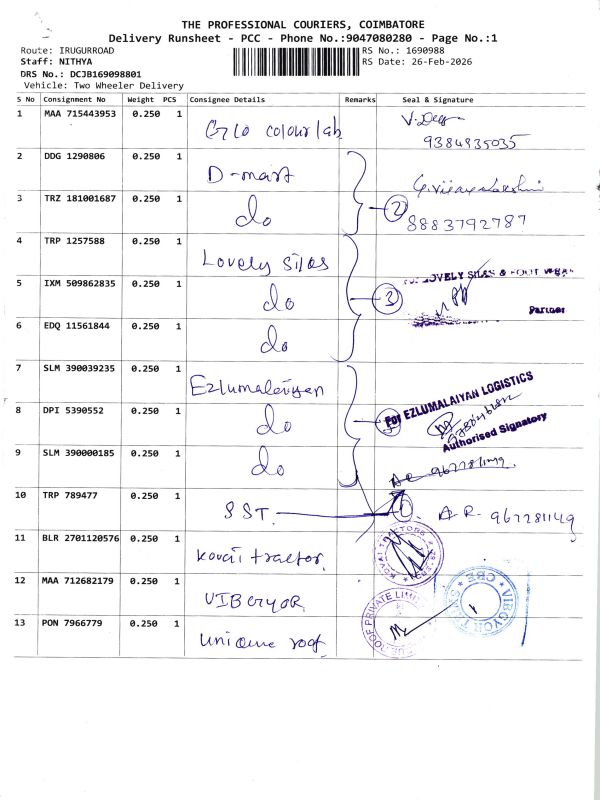 THE PROFESSIONAL COURIERS, COIMBATORE
Delivery Runsheet - PCC - Phone No.:9047080280 - Page No.:1
Route: IRUGURROAD
RS No.: 1690988
Staff: NITHYA
RS Date: 26-Feb-2026
DRS No.: DCJB169098801
Vehicle: Two Wheeler Delivery
S No Consignment No Weight PCS Consignee Details Remarks Seal & Signature
1 MAA 715443953 0.250 1 colour lab
9384835035
2 DDG 1290806 0.250 1 D-mart
3 TRZ 181001687 0.250 1 do 2 8883792787
4 TRP 1257588 0.250 1 Lovely silas
5 IXM 509862835 0.250 1 do 3 LOVELY SILAS & FOOT WEAR
Partner
6 EDQ 11561844 0.250 1 do
7 SLM 390039235 0.250 1 Ezlumalaiyan
For EZLUMALAIYAN LOGISTICS
8 DPI 5390552 0.250 1 do
Authorised Signatory
9 SLM 390000185 0.250 1 do
10 TRP 789477 0.250 1 SST. A R- 967281149
11 BLR 2701120576 0.250 1 Kovai tractor.
KOVAI TRACTORS
12 MAA 712682179 0.250 1 VIBGYOR
13 PON 7966779 0.250 1 unique roof
ROOF PRIVATE LIMI